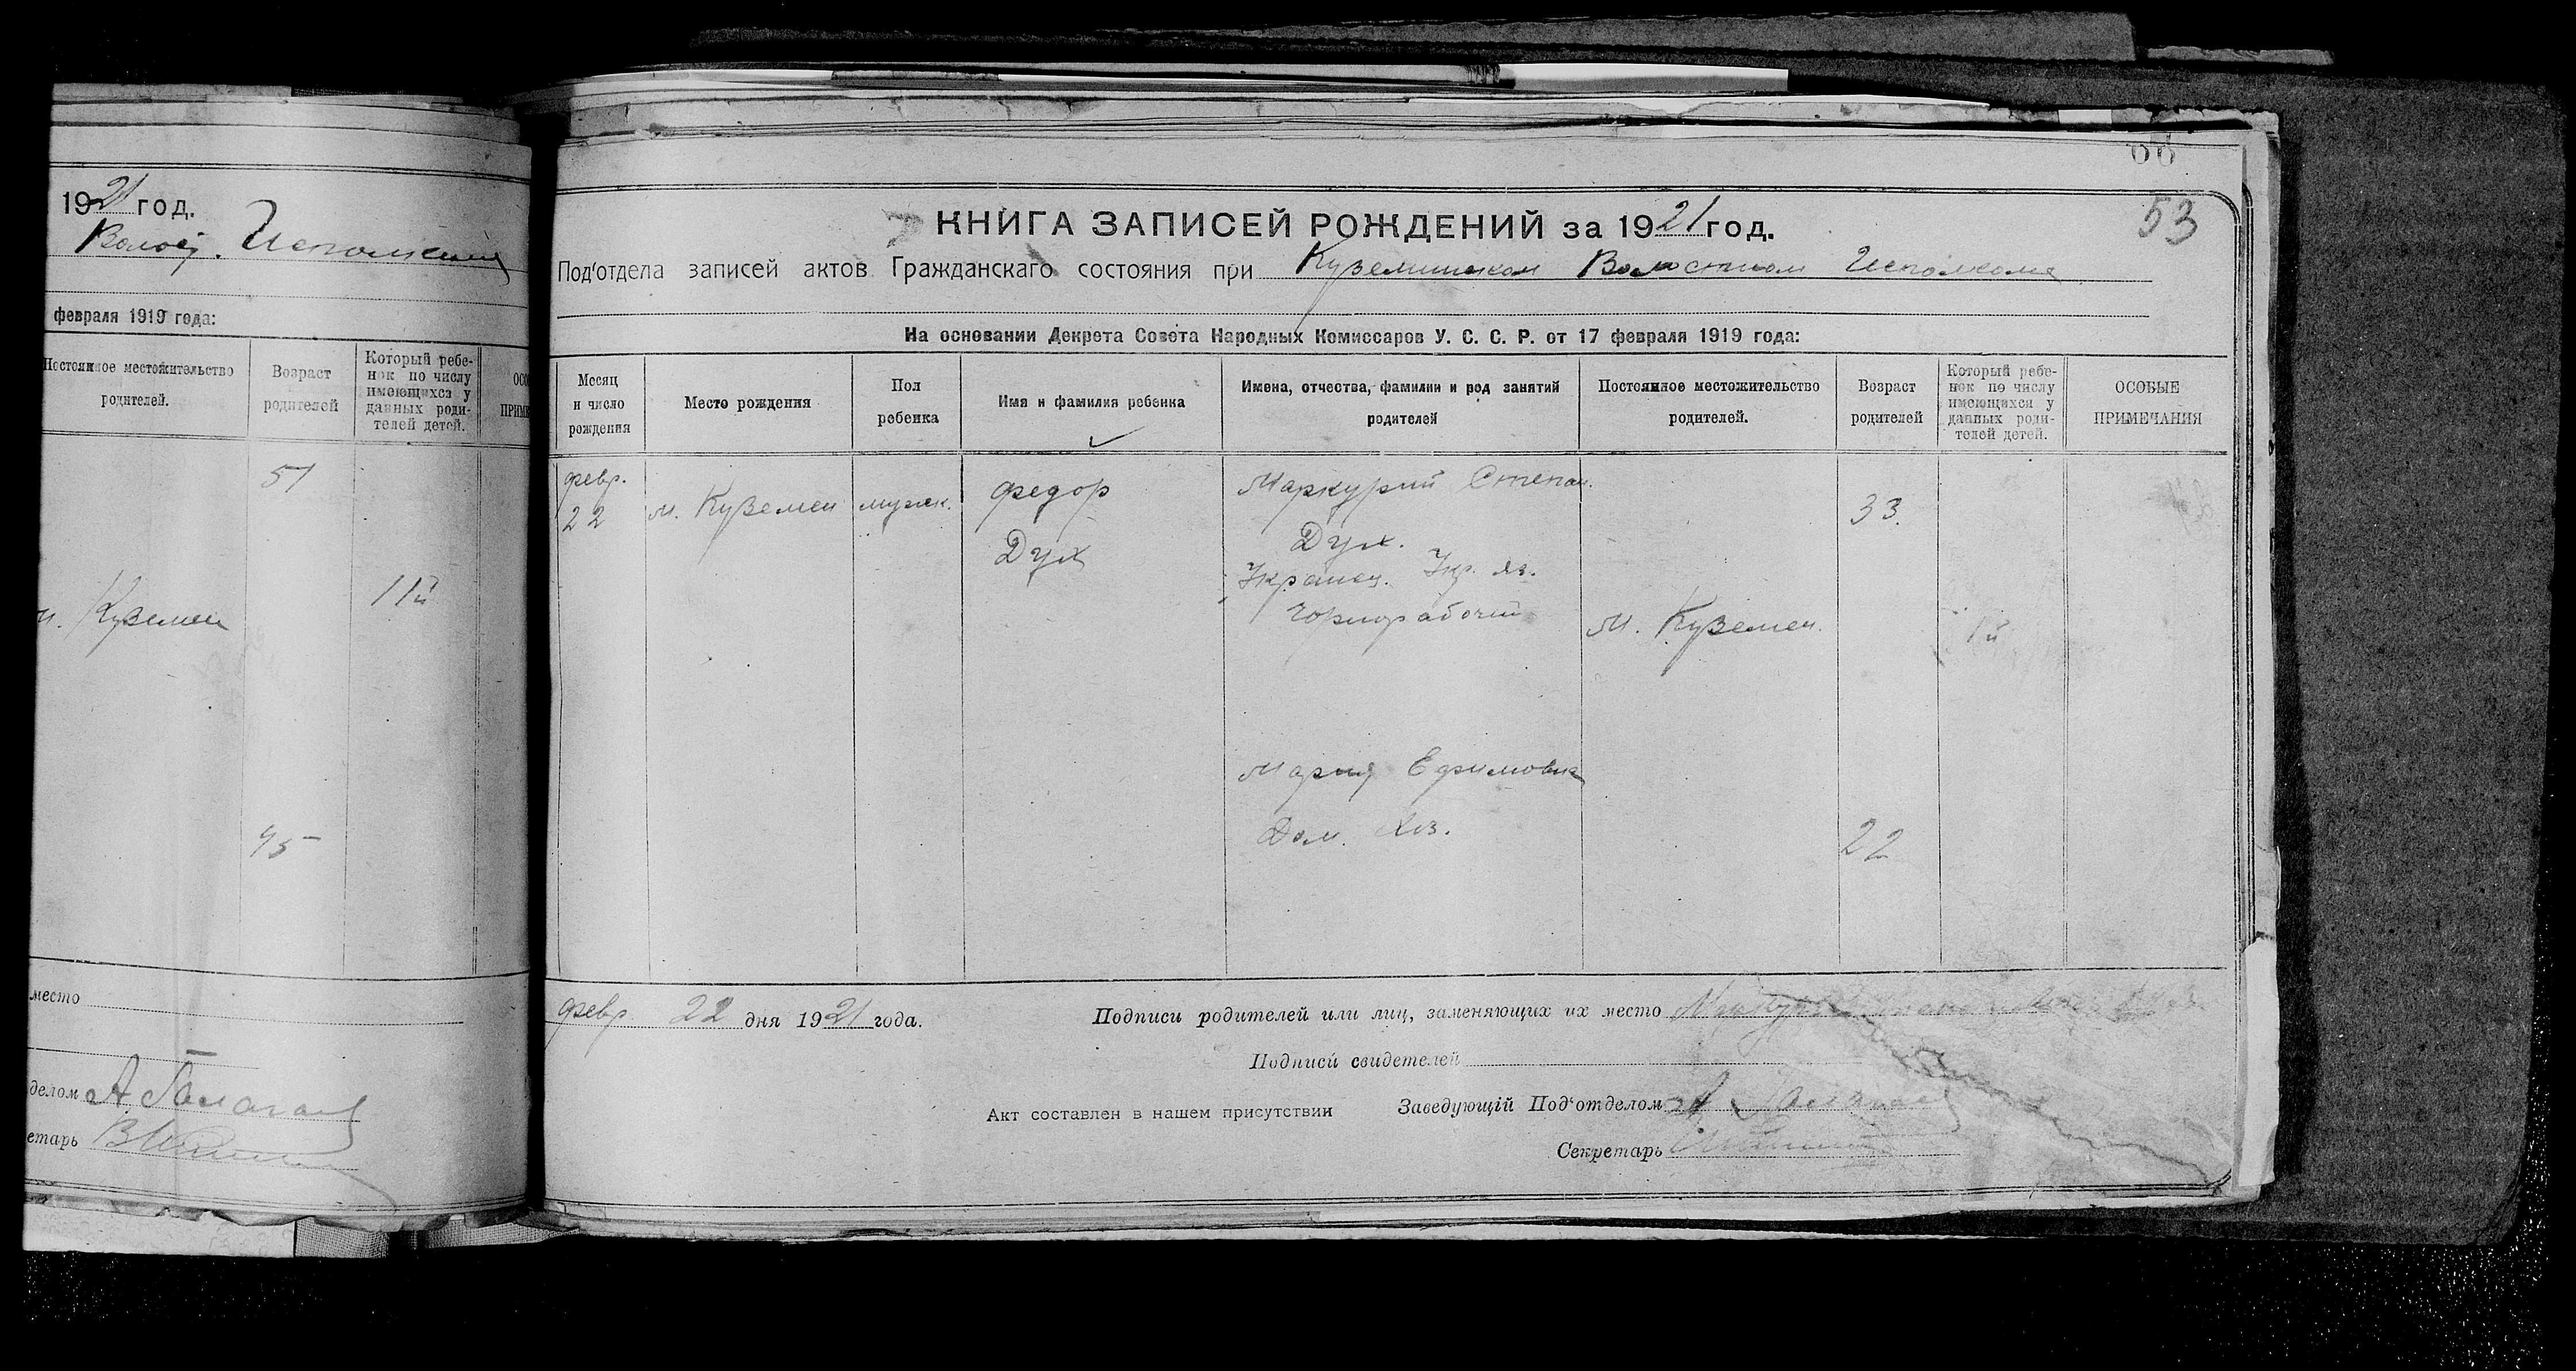 1921 год.
Волост. Исполкома
февраля 1919 года:
Постоянное местожительство родителей.
Возраст родителей
Который ребе-
нок по числу
имеющихся у
данных роди-
телей детей.
51
м. Куземен
11й
45
место
делом А Балаган
етарь
66
53
КНИГА ЗАПИСЕЙ РОЖДЕНИЙ за 1921 год.
Под'отдела записей актов Гражданскаго состояния при Куземинском Волостном Исполкоме
На основании Декрета Совета Народных Комиссаров У. С. С. Р. от 17 февраля 1919 года:
Месяц
и число
рождения
Место рождения
Пол
ребенка
Имя и фамилия ребенка
Имена, отчества, фамилии и род занятий
родителей
Постоянное местожительство
родителей.
Возраст
родителей
Который ребе-
нок по числу
имеющихся у
данных роди-
телей детей.
ОСОБЫЕ
ПРИМЕЧАНИЯ
февр.
22
м. Куземен
мужск.
Федор
Дух
Маркурий Степан.
Дух.
Украинец. Укр. яз.
Чорнорабочий
М. Куземен.
33.
1й
Мария Ефимовна
Дом. Хоз.
22
февр. 22 дня 1921 года.
Подписи родителей или лиц, заменяющих их место
Подписи свидетелей
Акт составлен в нашем присутствии
Заведующій Под'отделом А
Секретарь